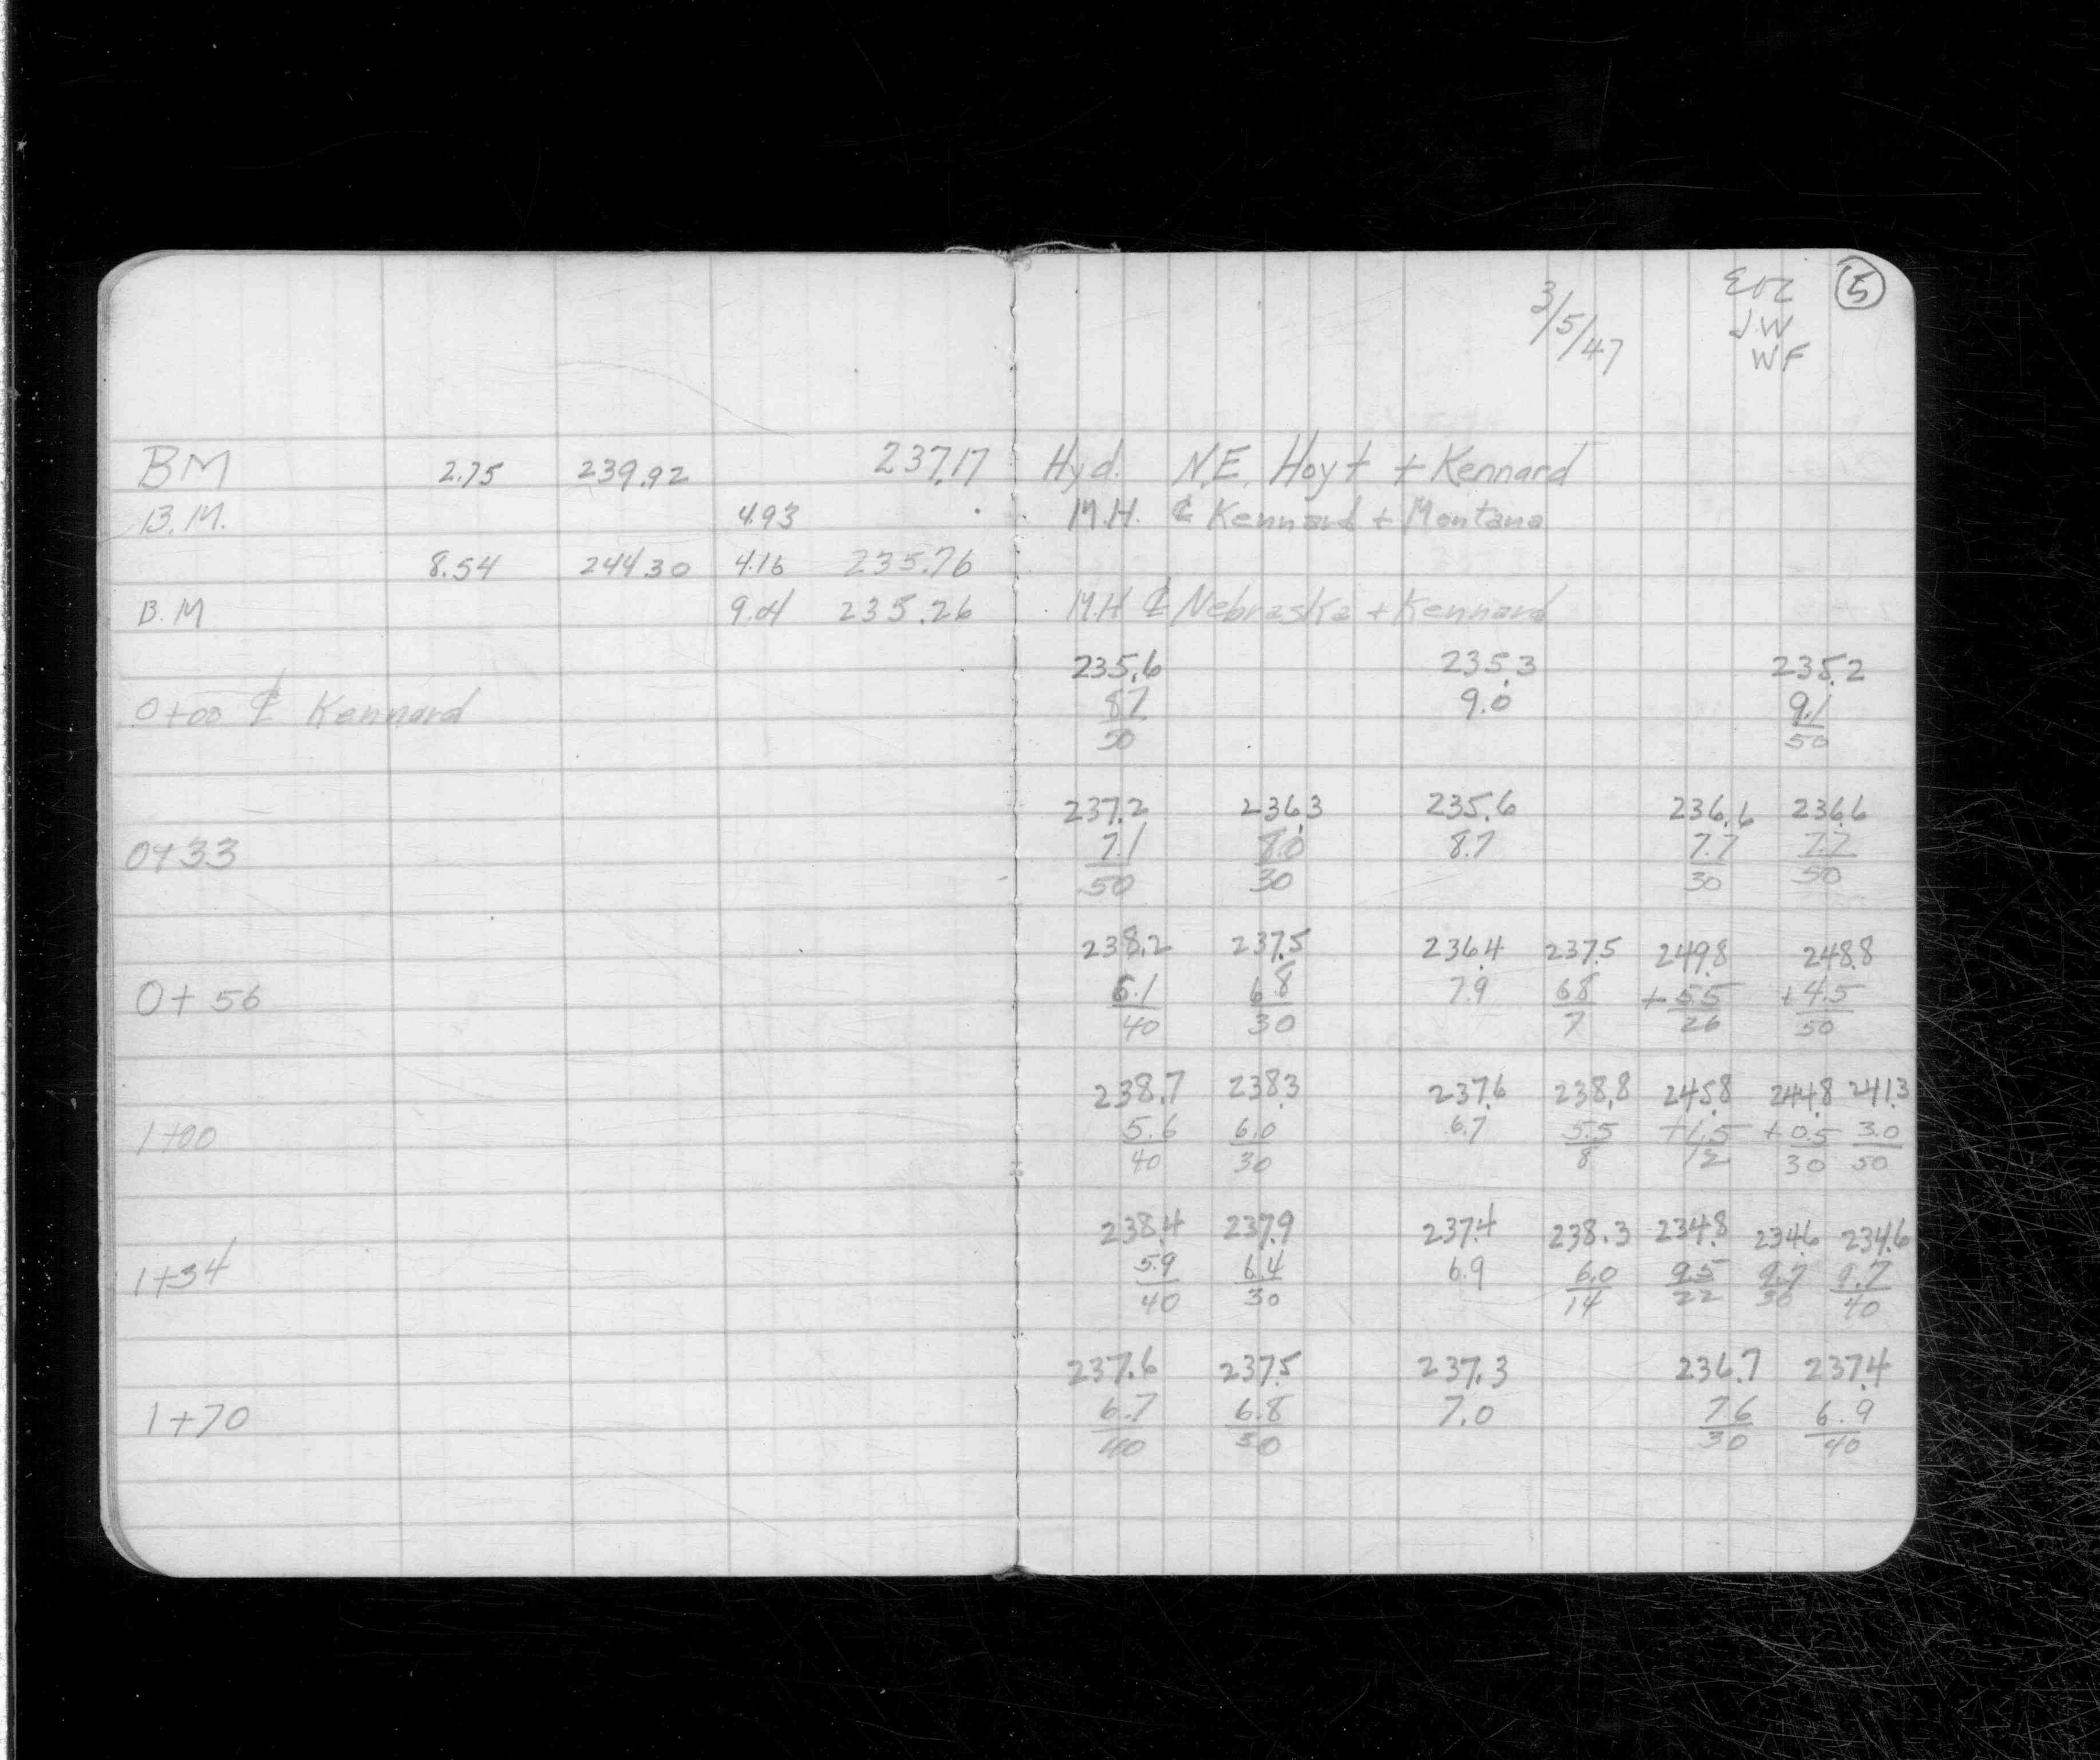 3/5/47 EOC 5
J.W
WF
BM 2.75 239.92 237.17 Hyd. N.E. Hoyt + Kennard
B.M. 4.93 M.H. ⅊ Kennard + Montana
8.54 244.30 4.16 235.76
B.M 9.04 235.26 M.H ⅊ Nebraska + Kennard
235.6 235.3 235.2
0+00 ⅊ Kennard 8.7 9.0 9.1
50 50
237.2 236.3 235.6 236.6 236.6
0+33 7.1 8.0 8.7 7.7 7.7
50 30 30 50
238.2 237.5 236.4 237.5 249.8 248.8
0+56 6.1 6.8 7.9 6.8 +5.5 +4.5
40 30 7 26 50
238.7 238.3 237.6 238.8 245.8 244.8 241.3
1+00 5.6 6.0 6.7 5.5 +1.5 +0.5 3.0
40 30 8 12 30 50
238.4 237.9 237.4 238.3 234.8 234.6 234.6
1+34 5.9 6.4 6.9 6.0 9.5 9.7 9.7
40 30 14 22 30 40
237.6 237.5 237.3 236.7 237.4
1+70 6.7 6.8 7.0 7.6 6.9
40 30 30 40